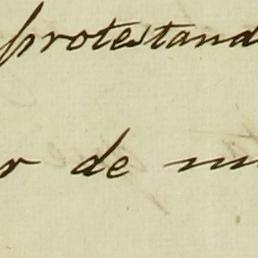 protestand
r de m